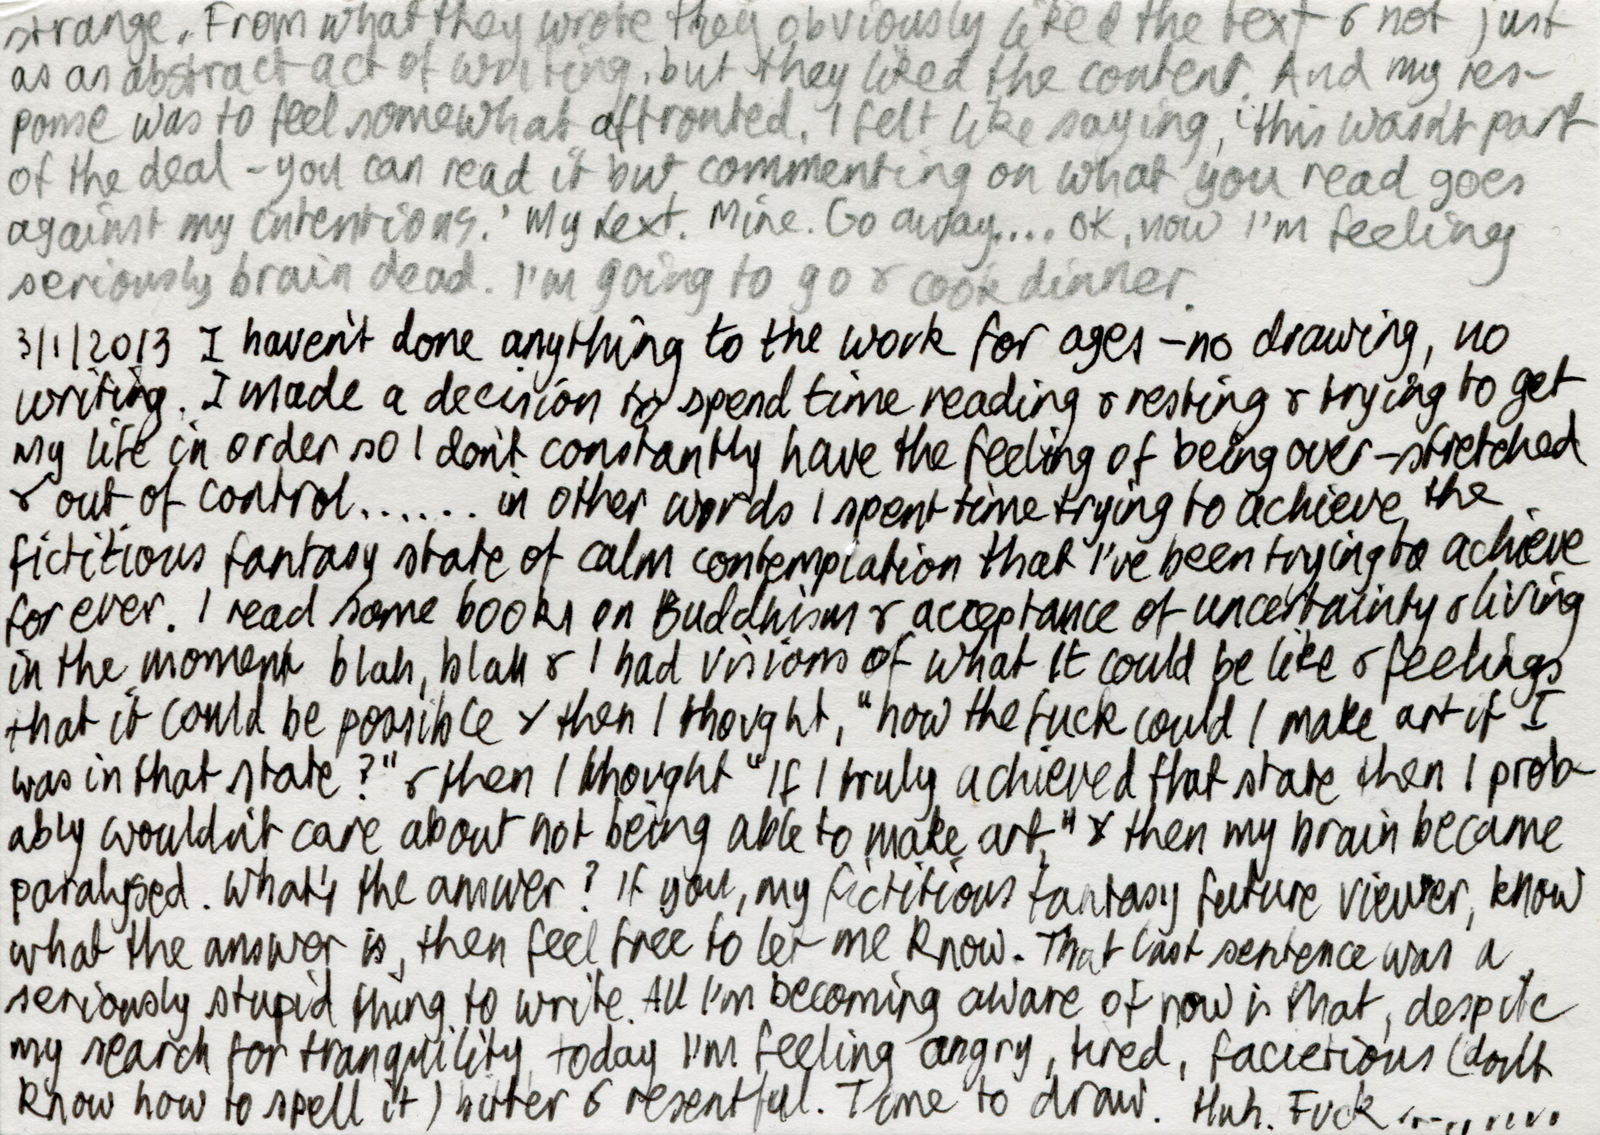 strange. From what they wrote they obviously liked the text & not just
as an abstract act of writing, but they liked the content. And my res-
ponse was to feel somewhat affronted. I felt like saying, 'this wasn't part
of the deal - you can read it but commenting on what you read goes
against my intentions.' My text. Mine. Go away.... OK, now I'm feeling
seriously brain dead. I'm going to go & cook dinner.
3/1/2013 I haven't done anything to the work for ages - no drawing, no
writing. I made a decision to spend time reading & resting & trying to get
my life in order so I don't constantly have the feeling of being over-stretched
& out of control....... in other words I spent time trying to achieve the
fictitious fantasy state of calm contemplation that I've been trying to achieve
for ever. I read some books on Buddhism & acceptance of uncertainty & living
in the moment blah, blah & I had visions of what it could be like & feelings
that it could be possible & then I thought, "how the fuck could I make art if I
was in that state?" & then I thought "If I truly achieved that state then I prob-
ably wouldn't care about not being able to make art." & then my brain became
paralysed. What's the answer? If you, my fictitious fantasy future viewer, know
what the answer is, then feel free to let me know. That last sentence was a
seriously stupid thing to write. All I'm becoming aware of now is that, despite
my search for tranquility, today I'm feeling angry, tired, facietious (don't
know how to spell it) bitter & resentful. Time to draw. Huh. Fuck..........